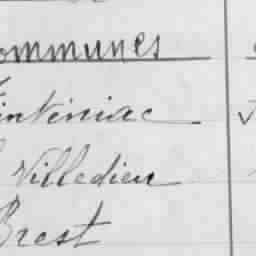 ommunes
inteniac
Villedieu
Brest